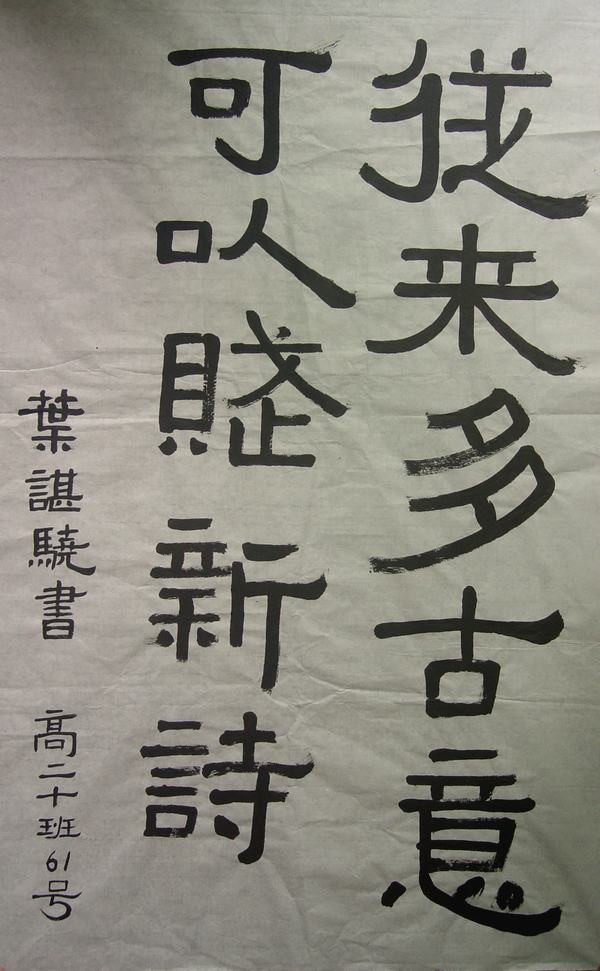 從来多古意
可以賦新詩
葉諶驍書 高二十班61号